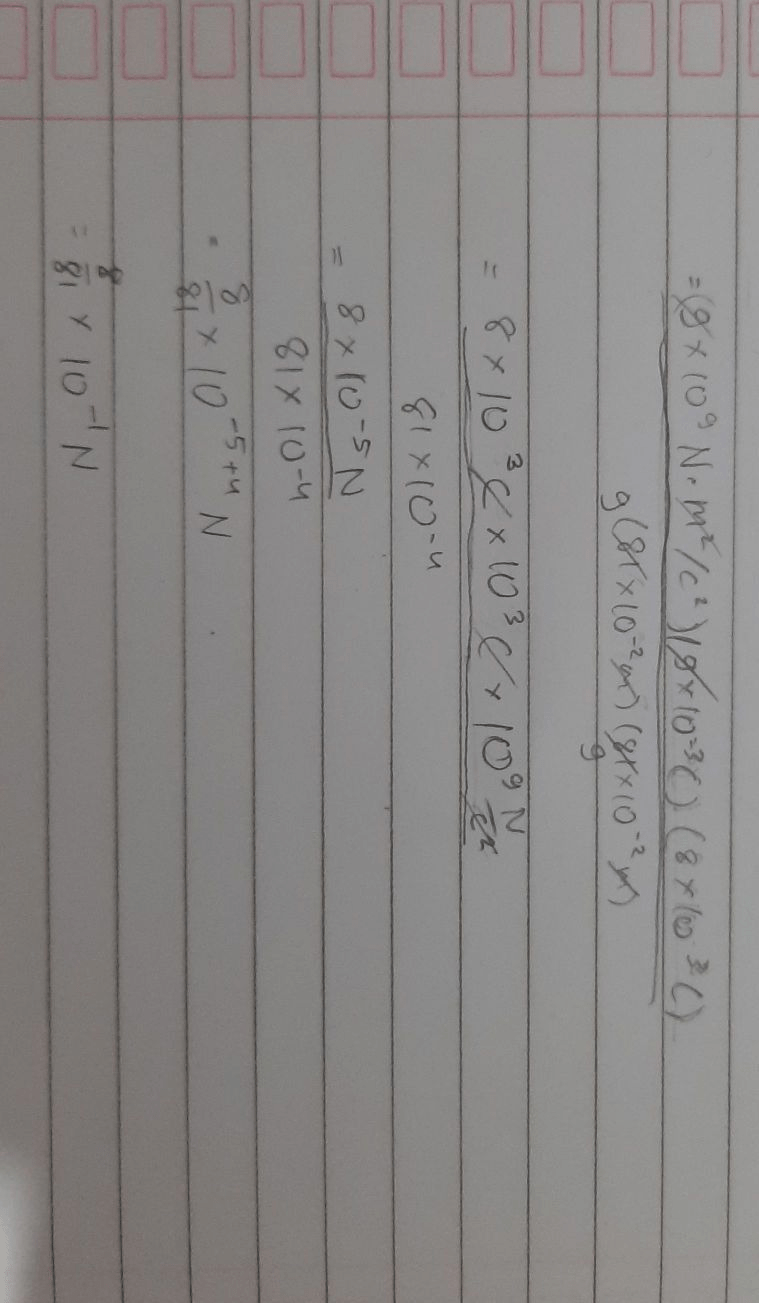 = (9 × 10⁹ N·m²/C²)(9 × 10⁻³C)(8 × 10⁻³C)
9(81 × 10⁻²m)(81 × 10⁻²m)
9
= 8 × 10³C × 10³C × 10⁹ N/C²
81 × 10⁻⁴
= 8 × 10⁻⁵N
81 × 10⁻⁴
= 8/81 × 10⁻⁵⁺⁴ N
= 8/81 × 10⁻¹ N